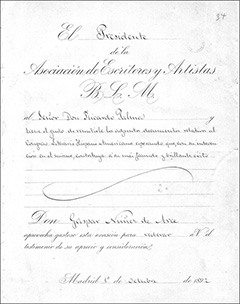 57
El Presidente
de la
Asociación de Escritores y Artistas
B. L. M.
al Señor Don Ricardo Palma y
tiene el gusto de remitirle los adjuntos documentos relativos al
Congreso Literario Hispano Americano, esperando que, con su interven
ción en el mismo, contribuya á su más fecundo y brillante éxito.
Don Gaspar Núñez de Arce
aprovecha gustoso esta ocasión para reiterar á V. el
testimonio de su aprecio y consideración.
Madrid 5 de Octubre de 1892